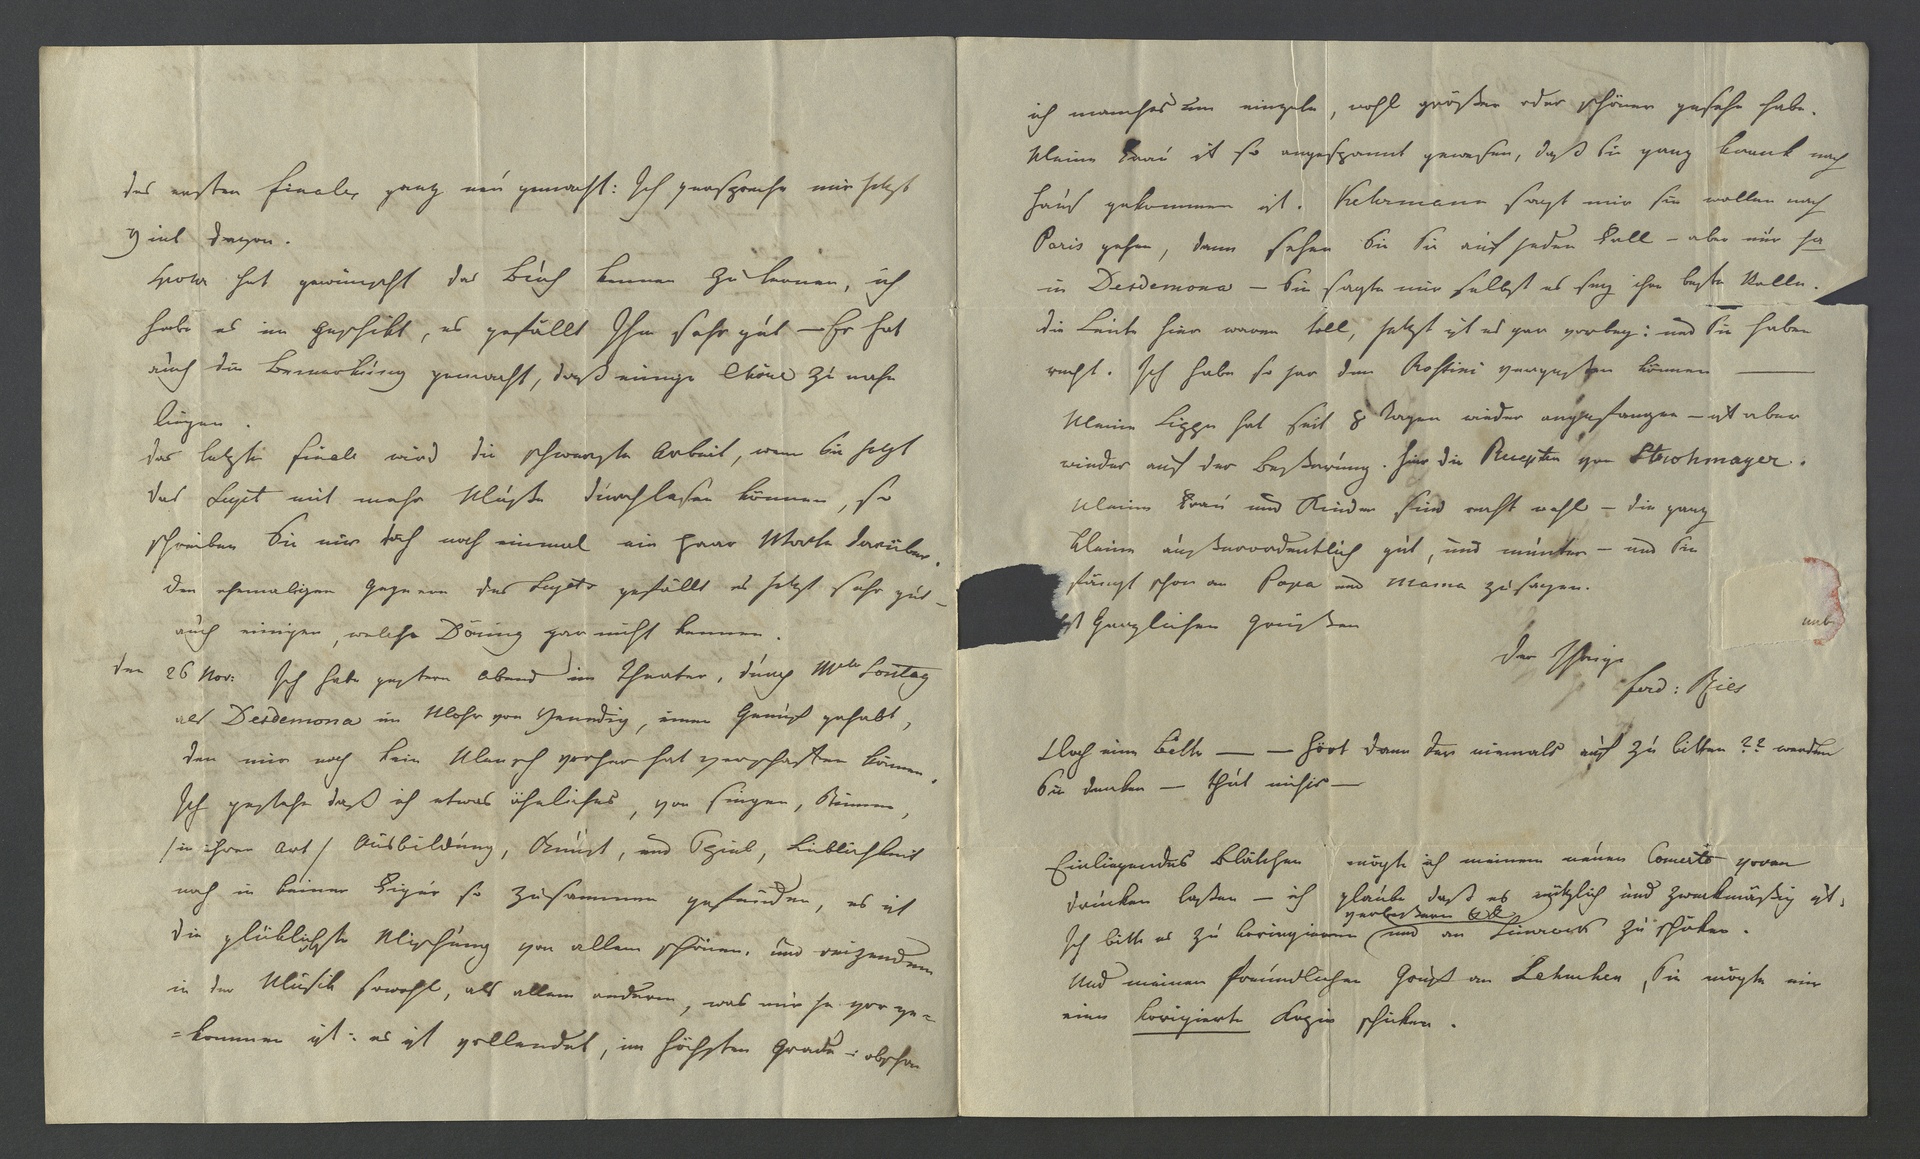 des ersten Finales ganz neu gemacht: Ich verspreche mir jetzt
viel davon.
Spohr hat gewünscht das Buch kennen zu lernen, ich
habe es im geschikt, es gefällt Ihm sehr gut — Er hat
auch die Bemerkung gemacht, daß einige Chöre zu nahe
liegen.
das letzte Finale wird die schwerste Arbeit, wenn Sie jetzt
das Sujet mit mehr Muße durchlesen können, so
schreiben Sie mir doch noch einmal ein paar Worte darüber.
den ehemaligen Gegnern des Sujets gefällt es jetzt sehr gut —
auch einigen, welche Döring gar nicht kennen.
den 26 Nov: Ich habe gestern Abend im Theater, durch Mlle Sontag
als Desdemona im Mohr von Venedig, einen Genuß gehabt,
den mir noch kein Mensch vorher hat verschaffen können.
Ich gestehe daß ich etwas ähnliches, von Singen, Stimme,
/in ihrer Art/ Ausbildung, Kunst, und Spiel, Lieblichkeit
noch in keiner Figur so zusammen gefunden, es ist
die glüklichste Mischung von allem schönen, und reizendem
in der Musik sowohl, als allem andern, was mir je vorge=
=kommen ist: es ist vollendet, im höchsten Grade — : obschon
ich manches im einzeln, wohl größer oder schöner gesehn habe.
Meine Frau ist so angespannt gewesen, daß Sie ganz krank nach
Hauß gekommen ist. Kelzmann sagt mir sie wollen nach
Paris gehen, dann sehen Sie Sie auf jeden Fall — aber nur ja
in Desdemona — Sie sagte mir selbst es sey ihre beste Rolle.
die Leute hier waren toll, jetzt ist es gar vorbey: und Sie haben
recht. Ich habe so gar den Rossini vergessen können —
Meine Lippe hat seit 8 Tagen wieder angefangen — ist aber
wieder auf der Besserung. hier die Recepten von Strohmayer.
Meine Frau und Kinder sind recht wohl — die ganz
kleine außerordentlich gut, und munter — und Sie
fängt schon an Papa und Mama zu sagen.
Herzlichen Grüßen
der Ihrige
Ferd: Ries
Noch eine Bitte — — hört dann der niemals auf zu bitten?? werden
Sie denken — thut nichts —
Einliegendes Blätchen mögte ich meinem neuen Concerto voran
drucken laßen — ich glaube daß es nützlich und zwekmäßig ist.
verbeßern &c
Ich bitte es zu korrigieren und an Simrock zu schiken.
Und meinen freundlichen Gruß an Lehnchen, Sie mögte mir
eine korigierte Kopie schiken.